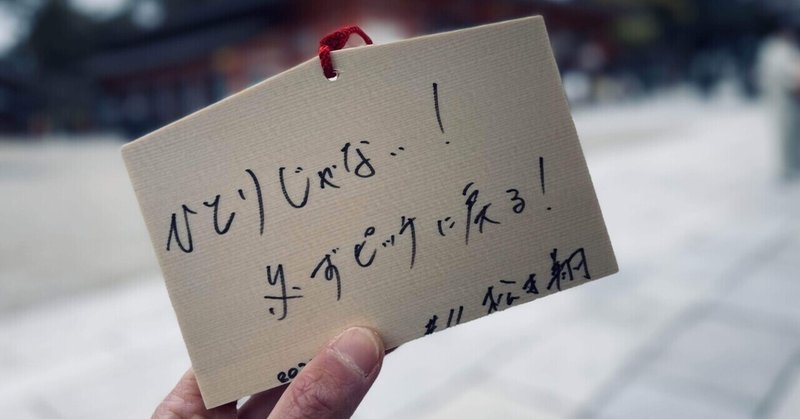 ひとりじゃない!
必ずピッチに戻る!
#11 松本翔